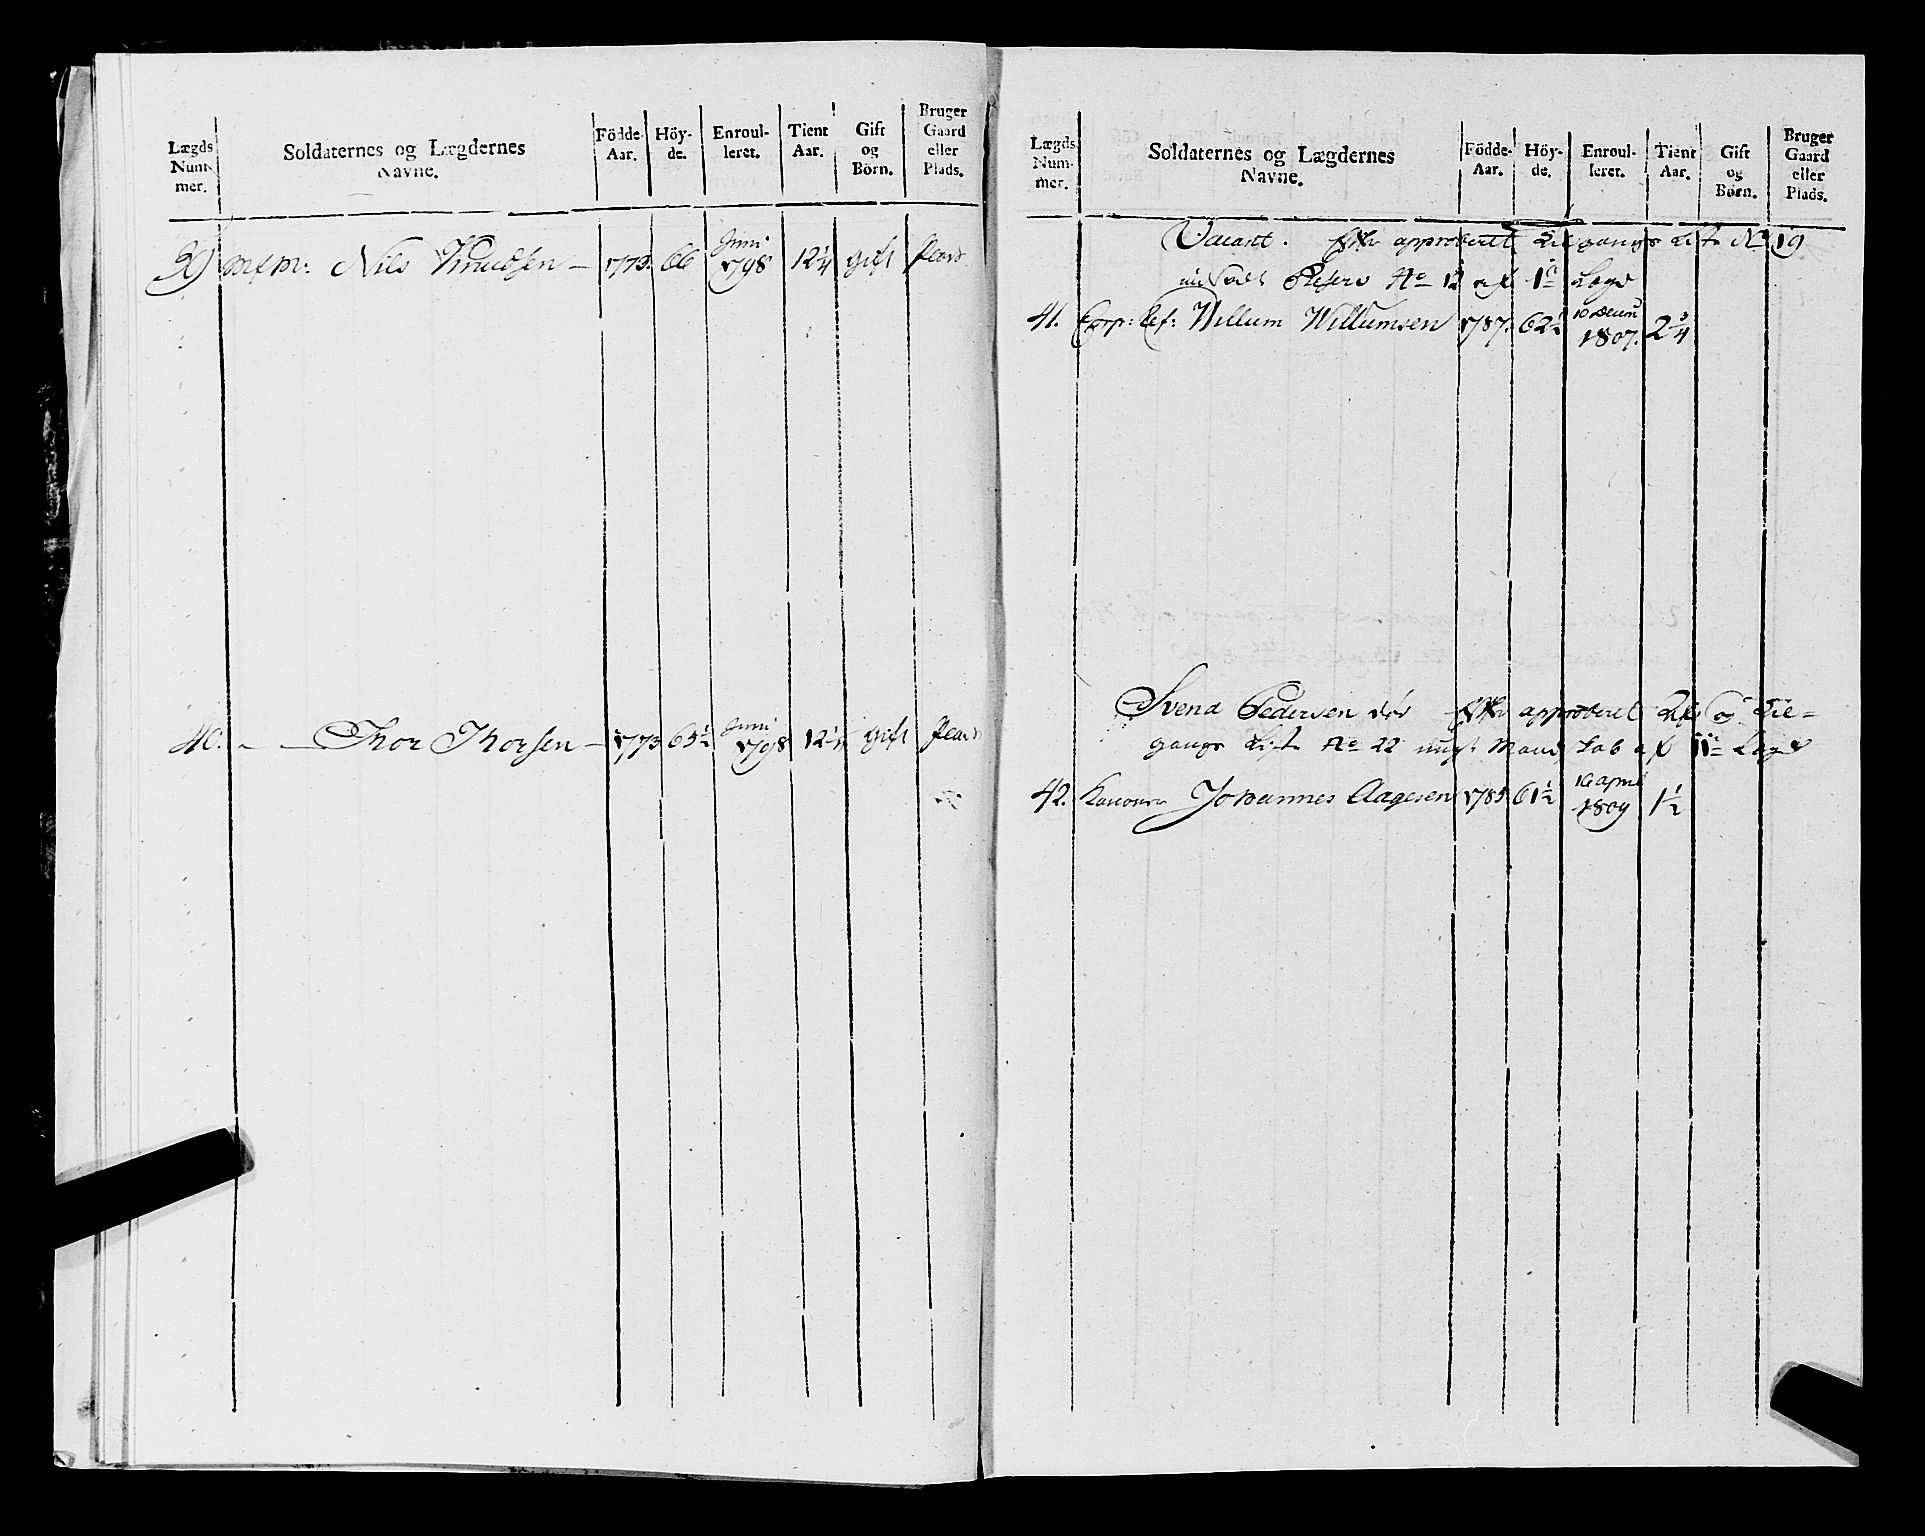 Lægds Num- mer.
Soldaternes og Lægdernes Navne.
Födde- Aar.
Höy- de.
Enroul- leret.
Tient Aar.
Gift og Børn.
Bruger Gaard eller Plads.
39 Nils Knudsen — 1773. 66 Juni 1798 12 1/4 gift Plads
40. — — Thor Thorsen — 1773 65 1/2 Juni 1798 12 1/4 gift Plads
Lægds Num- mer.
Soldaternes og Lægdernes Navne.
Födde- Aar.
Höy- de.
Enroul- leret.
Tient Aar.
Gift og Børn.
Bruger Gaard eller Plads.
Vacant. Efter approberet Tilgangs Liste No 19
Reserv No 12 af 1ste Lægd
41. Corp: Ref: Willum Willumsen 1787. 62 1/2 10 Decem 1807. 2 3/4
Svend Pedersen død Efter approberet Af og Til=
gangs Liste No 22 Mand af Lægd
42. Johannes Aagesen 1785 61 1/2 16 April 1809 1 1/2